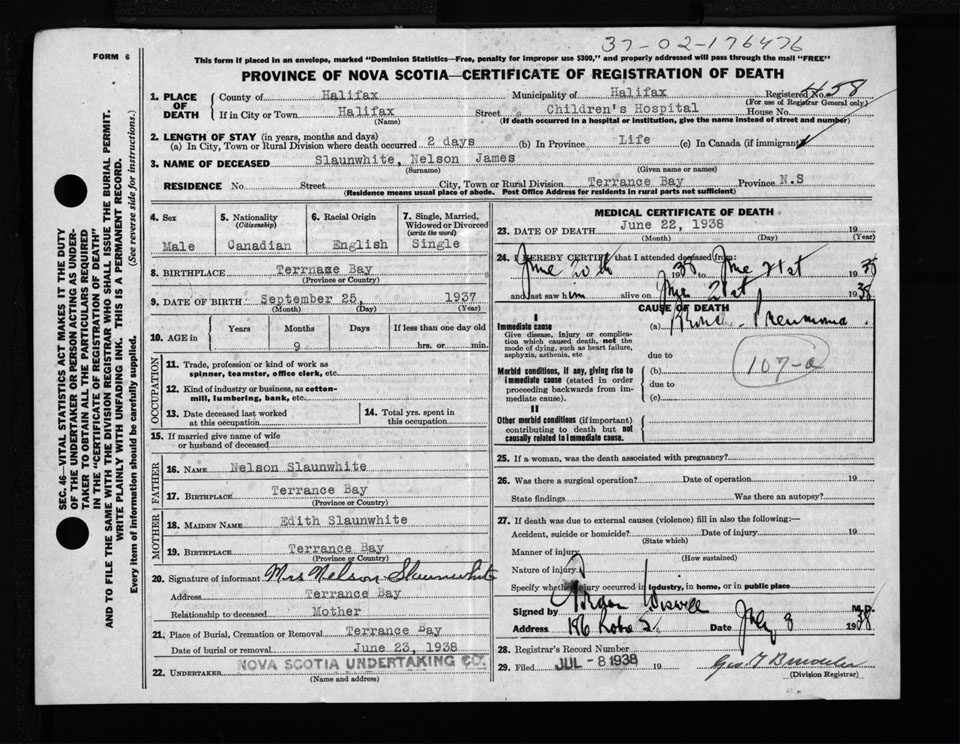 37-02-176476
FORM 6
This form if placed in an envelope, marked "Dominion Statistics—Free, penalty for improper use $300," and properly addressed will pass through the mail "FREE"
PROVINCE OF NOVA SCOTIA—CERTIFICATE OF REGISTRATION OF DEATH
1. PLACE OF DEATH { County of Halifax Municipality of Halifax Registered No. 4458
(For use of Registrar General only)
If in City or Town Halifax Street Children's Hospital House No.
(Name) (If death occurred in a hospital or institution, give the name instead of street and number)
2. LENGTH OF STAY (in years, months and days)
(a) In City, Town or Rural Division where death occurred 2 days (b) In Province Life (c) In Canada (if immigrant)
3. NAME OF DECEASED Slaunwhite, Nelson James
(Surname) (Given name or names)
RESIDENCE No. Street City, Town or Rural Division Terrance Bay Province N.S
(Residence means usual place of abode. Post Office Address for residents in rural parts not sufficient)
4. Sex Male
5. Nationality (Citizenship) Canadian
6. Racial Origin English
7. Single, Married, Widowed or Divorced (write the word) Single
8. BIRTHPLACE Terrnace Bay
(Province or Country)
9. DATE OF BIRTH September 25, 1937
(Month) (Day) (Year)
10. AGE in Years Months 9 Days If less than one day old hrs. or min.
OCCUPATION
11. Trade, profession or kind of work as spinner, teamster, office clerk, etc.
12. Kind of industry or business, as cotton-mill, lumbering, bank, etc.
13. Date deceased last worked at this occupation
14. Total yrs. spent in this occupation
15. If married give name of wife or husband of deceased
FATHER
16. NAME Nelson Slaunwhite
17. BIRTHPLACE Terrance Bay
(Province or Country)
MOTHER
18. MAIDEN NAME Edith Slaunwhite
19. BIRTHPLACE Terrance Bay
(Province or Country)
20. Signature of informant Mrs Nelson Slaunwhite
Address Terrance Bay
Relationship to deceased Mother
21. Place of Burial, Cremation or Removal Terrance Bay
Date of burial or removal June 23, 1938
22. UNDERTAKER NOVA SCOTIA UNDERTAKING CO.
(Name and address)
MEDICAL CERTIFICATE OF DEATH
23. DATE OF DEATH June 22, 1938 19
(Month) (Day) (Year)
24. I HEREBY CERTIFY that I attended deceased from:
June 20th 1938 to June 21st 1938
and last saw him alive on June 21st 1938
CAUSE OF DEATH
I
Immediate cause (a) Pneumonia
Give disease, injury or complication which caused death, not the mode of dying, such as heart failure, asphyxia, asthenia, etc
due to
Morbid conditions, if any, giving rise to immediate cause (stated in order proceeding backwards from immediate cause).
(b)
due to
(c)
107-a
II
Other morbid conditions (if important) contributing to death but not causally related to immediate cause.
25. If a woman, was the death associated with pregnancy?
26. Was there a surgical operation? Date of operation 19
State findings Was there an autopsy?
27. If death was due to external causes (violence) fill in also the following:—
Accident, suicide or homicide? Date of injury 19
(State which)
Manner of injury
(How sustained)
Nature of injury
Specify whether injury occurred in industry, in home, or in public place
Signed by Wiswell M.D.
Address 186 Date July 8 1938
28. Registrar's Record Number
29. Filed JUL -8 1938 19
(Division Registrar)
SEC. 46—VITAL STATISTICS ACT MAKES IT THE DUTY
OF THE UNDERTAKER OR PERSON ACTING AS UNDER-
TAKER TO OBTAIN ALL THE PARTICULARS REQUIRED
IN THE "CERTIFICATE OF REGISTRATION OF DEATH"
AND TO FILE THE SAME WITH THE DIVISION REGISTRAR WHO SHALL ISSUE THE BURIAL PERMIT.
WRITE PLAINLY WITH UNFADING INK. THIS IS A PERMANENT RECORD.
Every item of information should be carefully supplied. (See reverse side for instructions.)